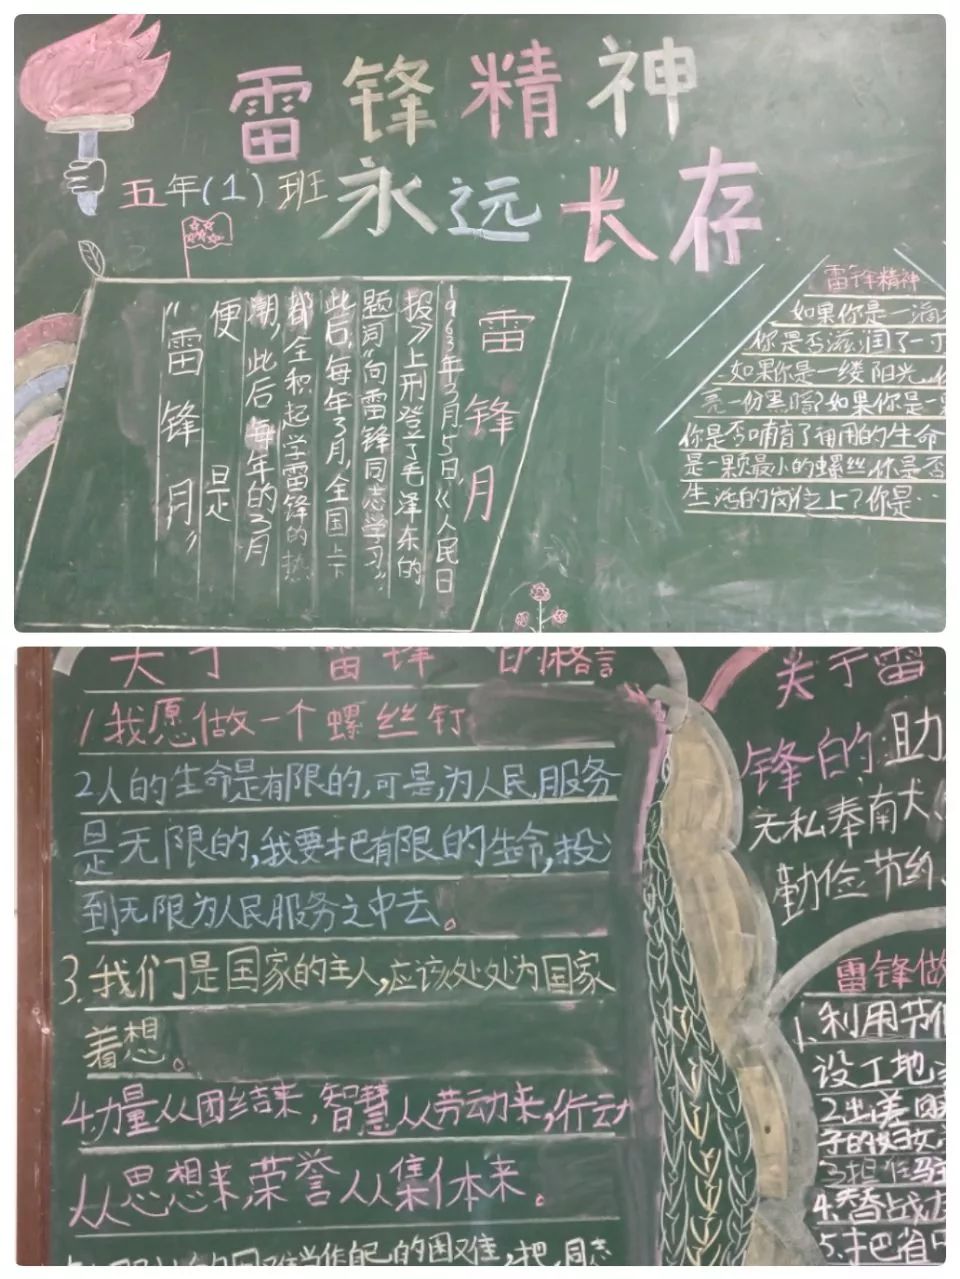 雷锋精神
永远长存
五年(1)班
雷锋月
1963年3月5日,《人民日
报》上刑登了毛泽东的
题词“向雷锋同志学习”
此后,每年3月,全国上下
都全积起学雷锋的热
潮,此后每年的3月
便是
“雷锋月”
雷锋精神
如果你是一滴
你是否滋润了一寸
如果你是一缕阳光
亮一份黑暗?如果你是一
你是否哺育了有用的生命
是一颗最小的螺丝,你是否
生活的岗位上?你是…
关于雷锋的格言
1.我愿做一个螺丝钉
2.人的生命是有限的,可是,为人民服务
是无限的,我要把有限的生命,投
到无限为人民服务之中去。
3.我们是国家的主人,应该处处为国家
着想。
4.力量从团结来,智慧从劳动来,行动
从思想来,荣誉从集体来。
的困难当作自己的困难,把同志
关于雷
锋的:助
无私奉南犬
勤俭节约
雷锋做
1.利用节
设工地
2.出差
子的妇女
3.担任
4.替战友
5.把省